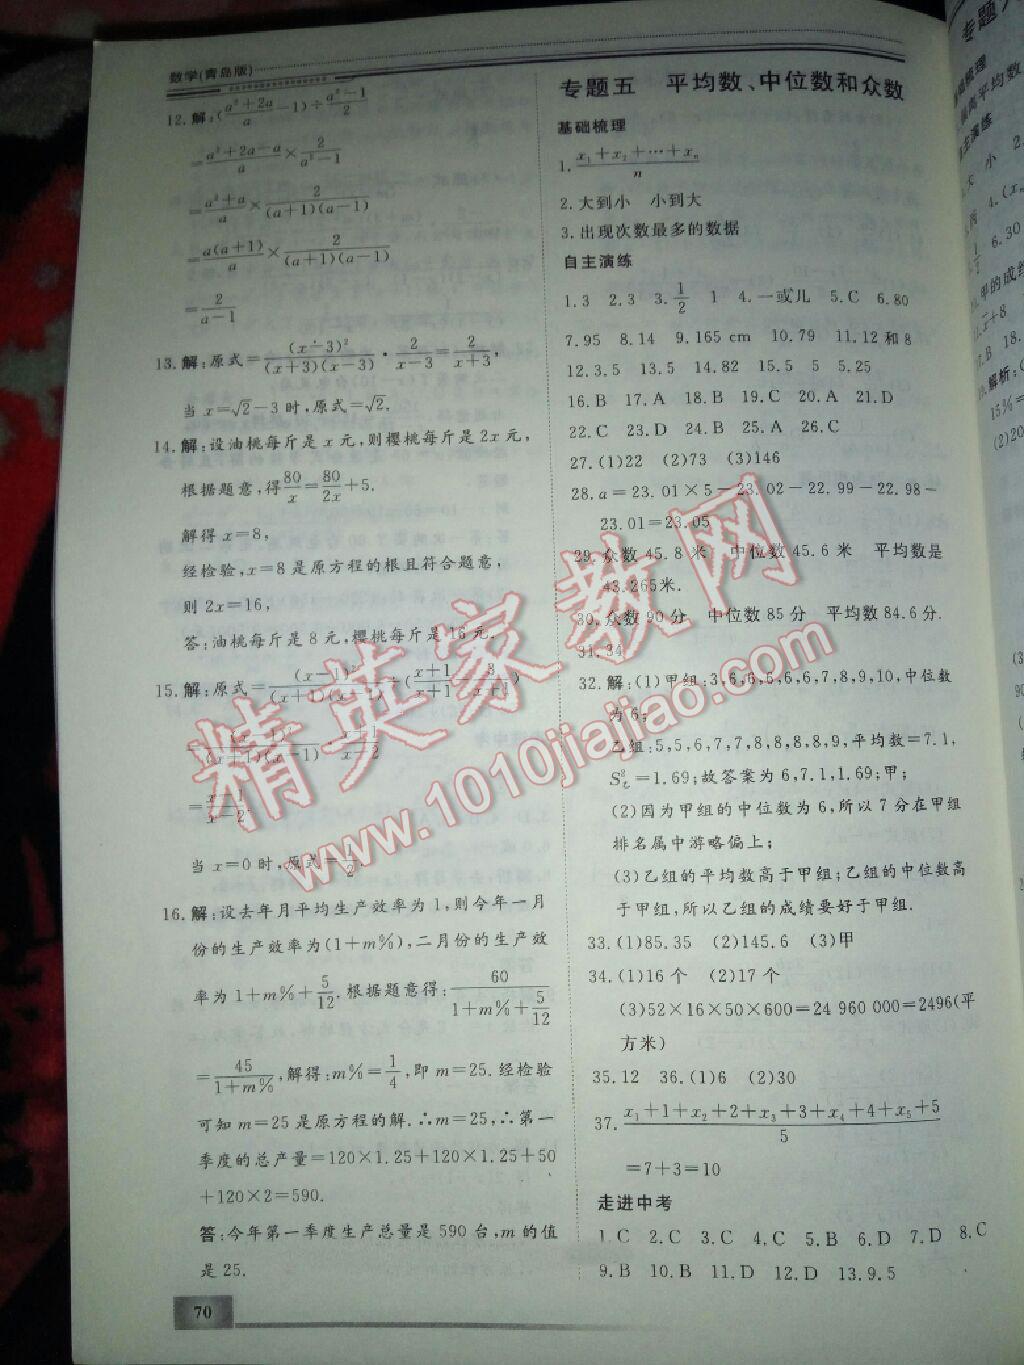 数学(青岛版)
12.解:(a²+2a/a-1)÷a²-1/2
=a²+2a-a/a×2/a²-1
=a²+a/a×2/(a+1)(a-1)
=a(a+1)/a×2/(a+1)(a-1)
=2/a-1
13.解:原式=(x-3)²/(x+3)(x-3)·2/x-3=2/x+3,
当x=√2-3时,原式=√2.
14.解:设油桃每斤是x元,则樱桃每斤是2x元,
根据题意,得80/x=80/2x+5.
解得x=8,
经检验,x=8是原方程的根且符合题意,
则2x=16,
答:油桃每斤是8元,樱桃每斤是16元.
15.解:原式=(x-1)²/(x+1)(x-1)÷(x+1/x+1-3/x+1)
=(x-1)²/(x+1)(x-1)·x+1/x-2
=x-1/x-2.
当x=0时,原式=1/2.
16.解:设去年月平均生产效率为1,则今年一月
份的生产效率为(1+m%),二月份的生产效
率为1+m%+5/12,根据题意得:60/1+m%+5/12
=45/1+m%,解得:m%=1/4,即m=25.经检验
可知m=25是原方程的解.∴m=25,∴第一
季度的总产量=120×1.25+120×1.25+50
+120×2=590.
答:今年第一季度生产总量是590台,m的值
是25.
70
专题五 平均数、中位数和众数
基础梳理
1.x₁+x₂+…+xₙ/n
2.大到小 小到大
3.出现次数最多的数据
自主演练
1.3 2.3 3.1/2 1 4.一或几 5.C 6.80
7.95 8.14 9.165 cm 10.79 11.12和8
12.3.5 13.5 14.82 15.5 5 5.25
16.B 17.A 18.B 19.C 20.A 21.D
22.C 23.D 24.B 25.A 26.C
27.(1)22 (2)73 (3)146
28.a=23.01×5-23.02-22.99-22.98-
23.01=23.05
29.众数45.8米 中位数45.6米 平均数是
43.265米.
30.众数90分 中位数85分 平均数84.6分.
31.34
32.解:(1)甲组:3,6,6,6,6,6,7,8,9,10,中位数
为6;
乙组:5,5,6,7,7,8,8,8,8,9,平均数=7.1,
S²乙=1.69;故答案为6,7.1,1.69;甲;
(2)因为甲组的中位数为6,所以7分在甲组
排名属中游略偏上;
(3)乙组的平均数高于甲组;乙组的中位数高
于甲组,所以乙组的成绩要好于甲组.
33.(1)85.35 (2)145.6 (3)甲
34.(1)16个 (2)17个
(3)52×16×50×600=24 960 000=2496(平
方米)
35.12 36.(1)6 (2)30
37.x₁+1+x₂+2+x₃+3+x₄+4+x₅+5/5
=7+3=10
走进中考
1.C 2.C 3.C 4.C 5.B 6.D 7.D 8.C
9.B 10.B 11.D 12.D 13.9.5
精英家教网
www.1010jiajiao.com